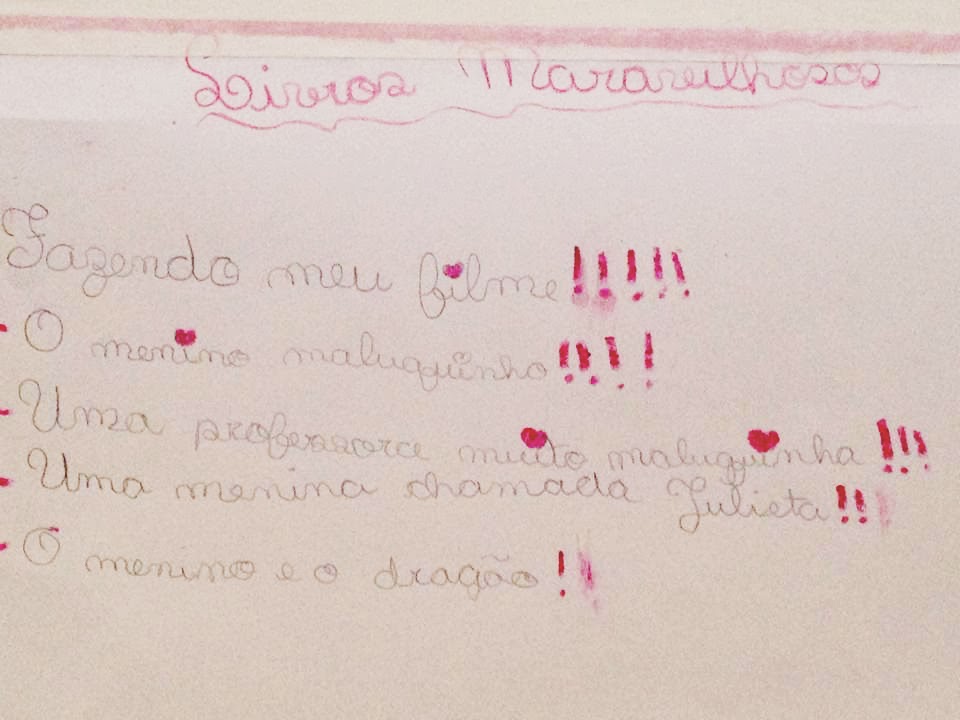 Livros Maravilhosos
Fazendo meu filme!!!!!
- O menino maluquinho!!!!
- Uma professora muito maluquinha!!!
- Uma menina chamada Julieta!!!
- O menino e o dragão!!